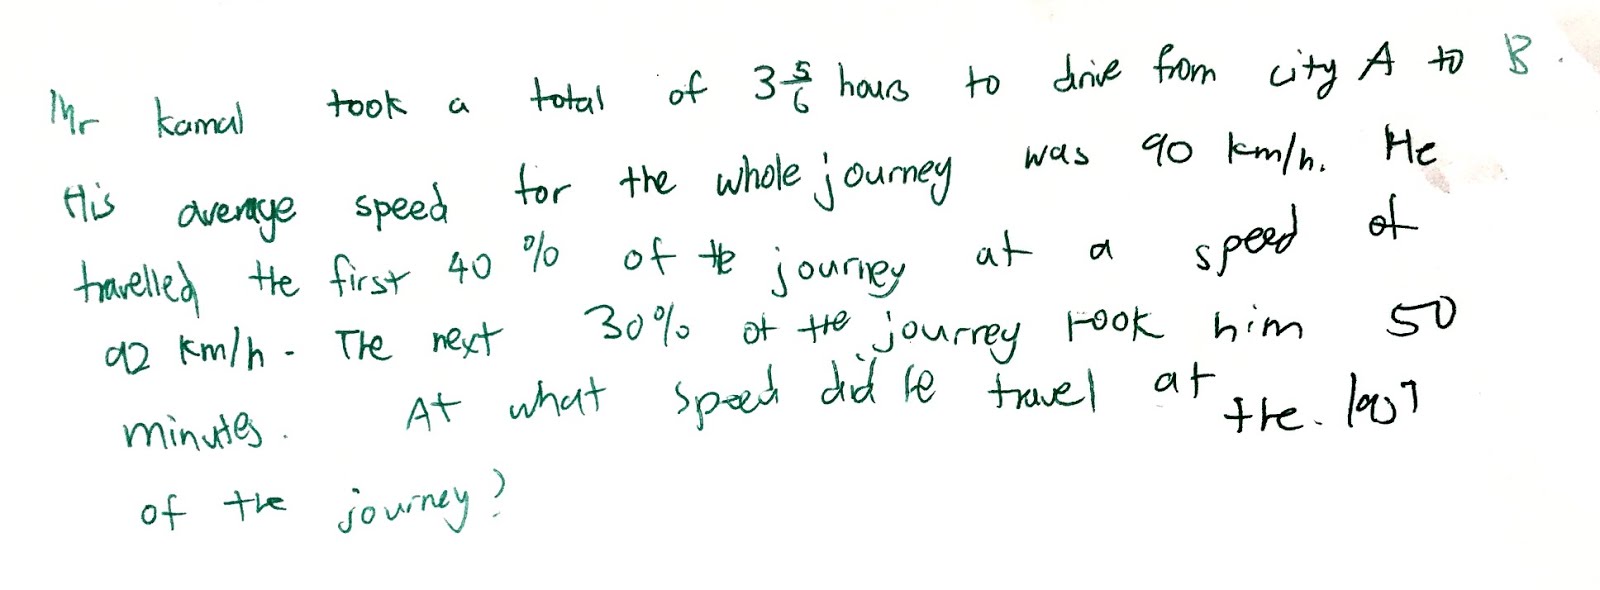 Mr kamal took a total of 3 5/6 hours to drive from city A to B.
His average speed for the whole journey was 90 km/h. He
travelled the first 40 % of the journey at a speed of
92 km/h. The next 30% of the journey took him 50
minutes. At what speed did he travel at the last
of the journey?